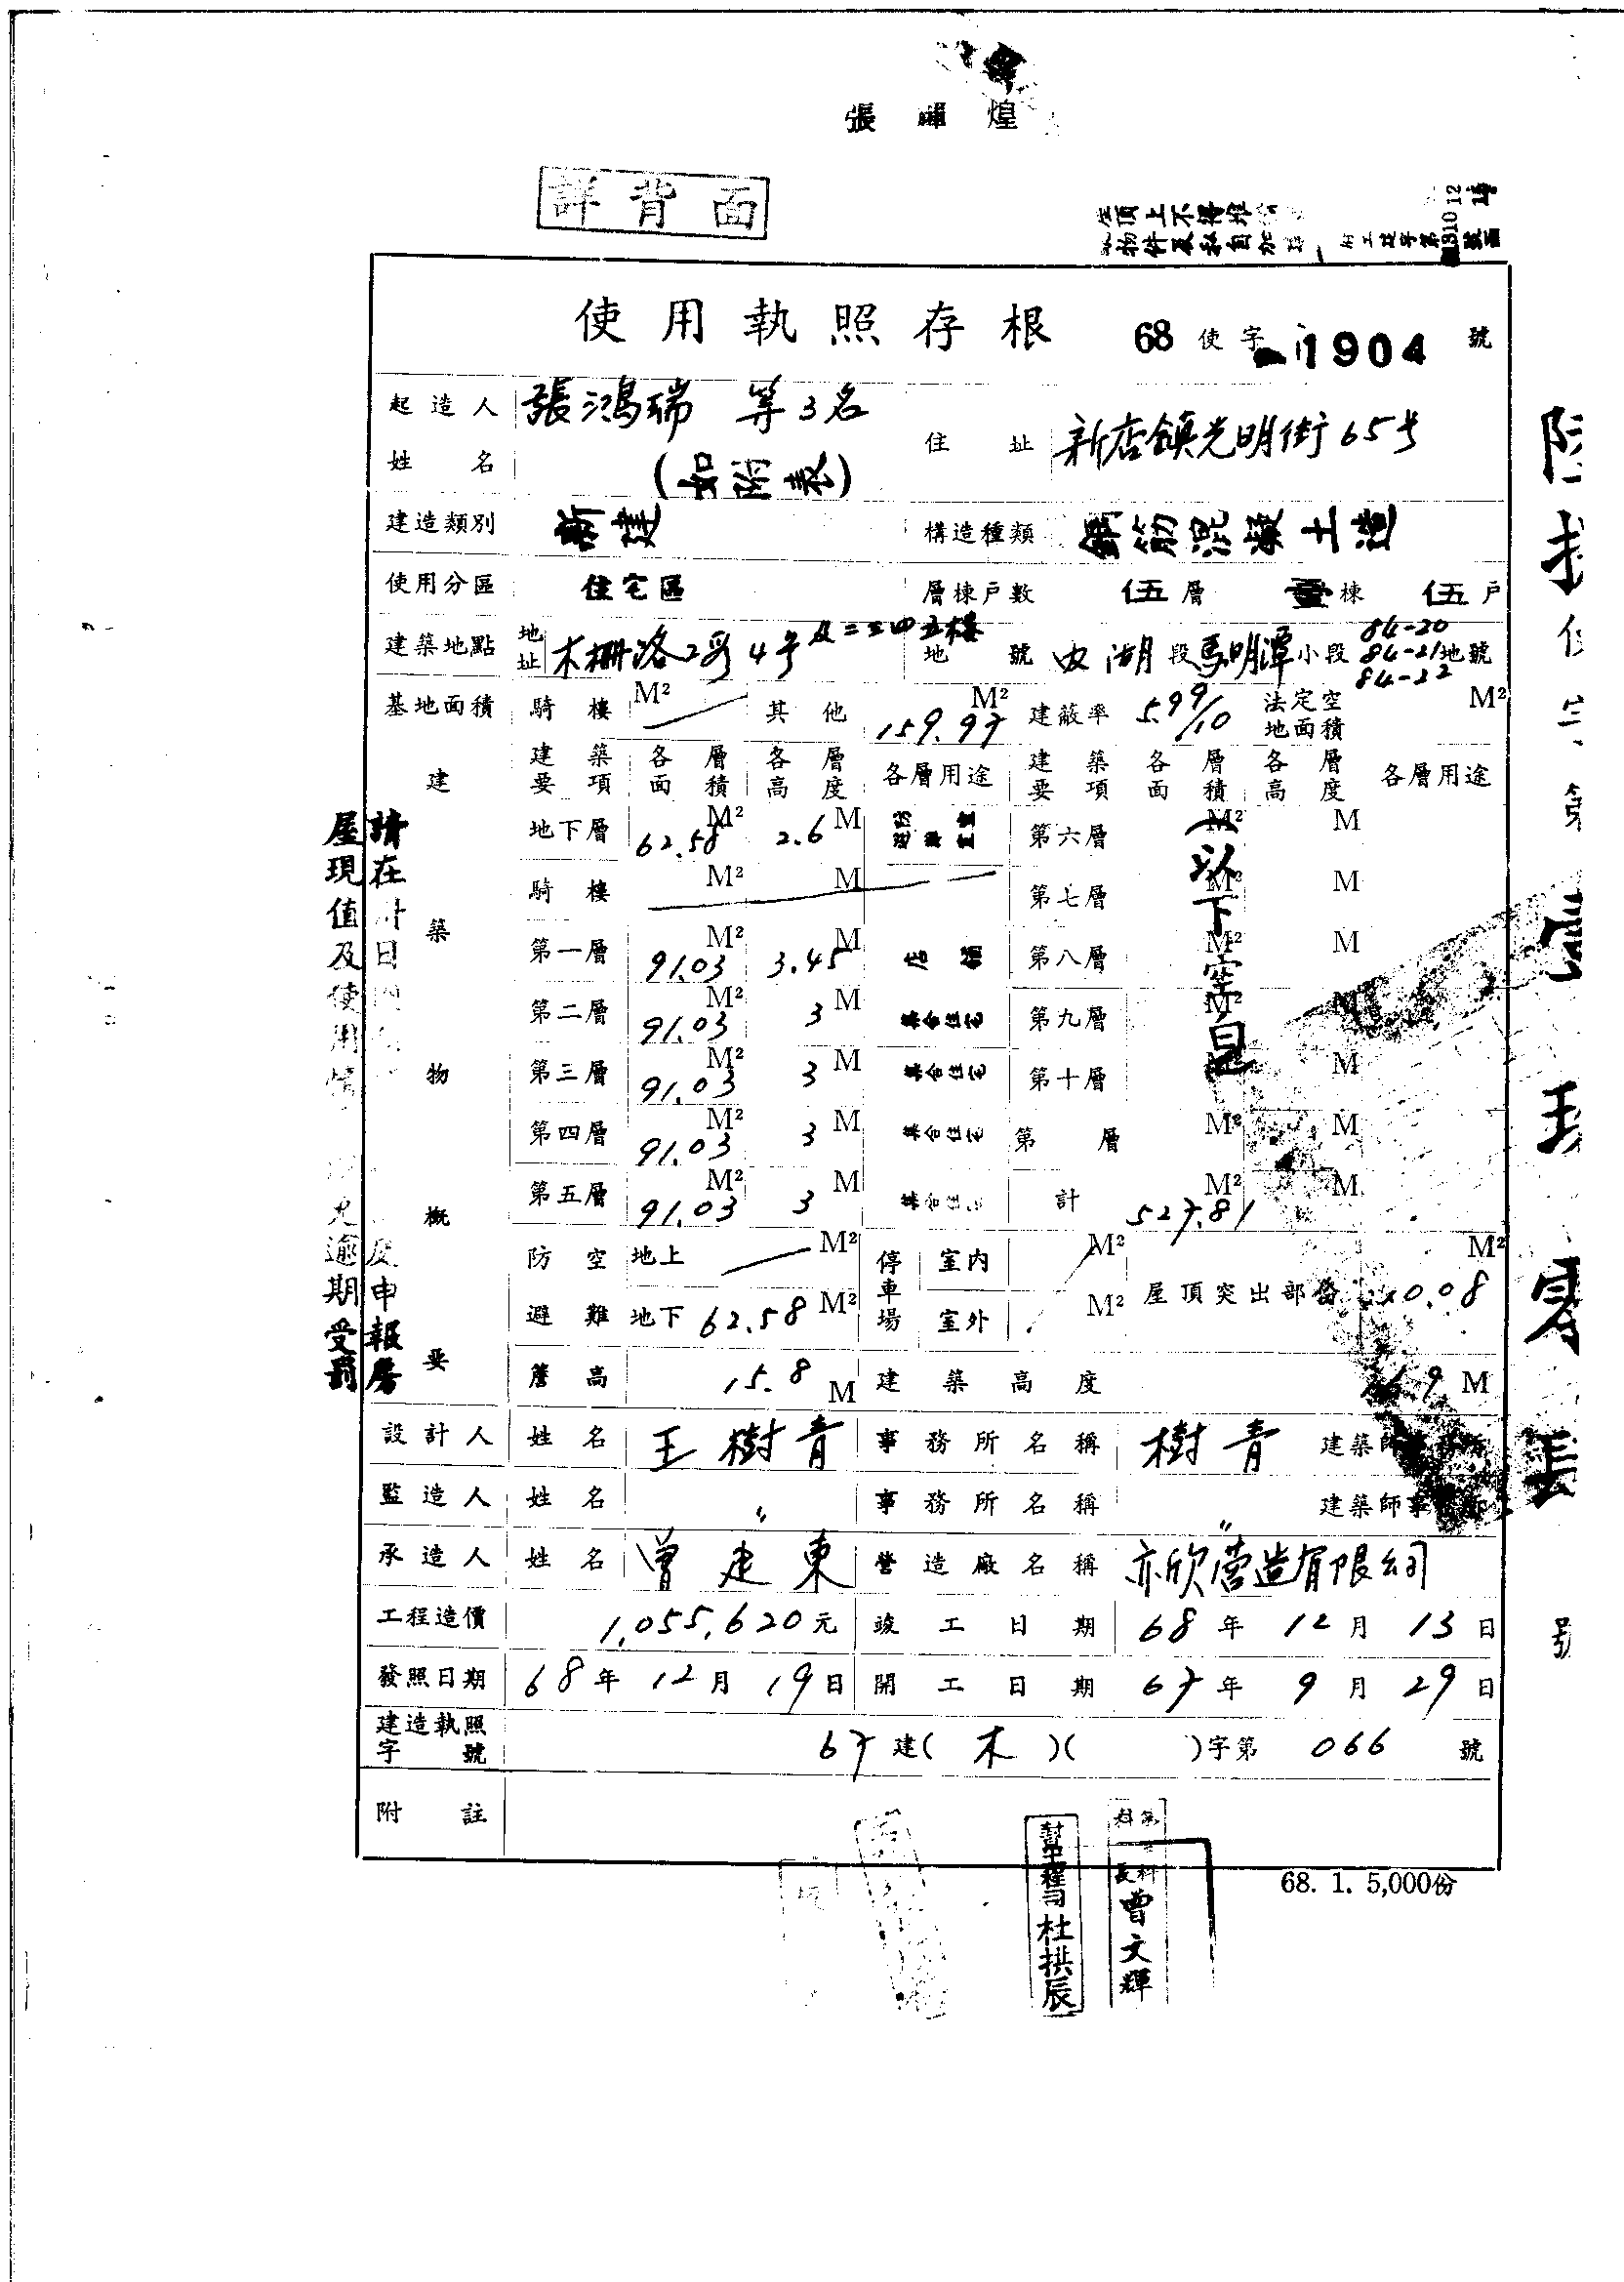 張 煌
詳背面
頂上不得堆
物件及私自加
使用執照存根 68 使字 1904 號
起造人姓名 張鴻瑞 等3名 (如附表) 住址 新店鎮光明街65号
建造類別 新建 構造種類 鋼筋混凝土造
使用分區 住宅區 層棟戶數 伍層 壹棟 伍戶
建築地點 地址 木柵路2段4号及二三四五樓 地號 內湖段馬明潭小段 84-20 84-21 84-22 地號
基地面積 騎樓 M² 其他 159.97 M² 建蔽率 5.99/10 法定空地面積 M²
建築物概要
建築要項 各層面積 各層高度 各層用途 建築要項 各層面積 各層高度 各層用途
地下層 62.58 M² 2.6 M 第六層 M² M
(以下空白)
騎樓 M² M 第七層 M² M
第一層 91.03 M² 3.45 M 店舖 第八層 M² M
第二層 91.03 M² 3 M 集合住宅 第九層 M² M
第三層 91.03 M² 3 M 集合住宅 第十層 M² M
第四層 91.03 M² 3 M 集合住宅 第 層 M² M
第五層 91.03 M² 3 M 集合住宅 計 527.81 M² M
防空避難 地上 M² 停車場 室內 M² 屋頂突出部份 10.08 M²
地下 62.58 M² 室外 M²
簷高 15.8 M 建築高度 M
設計人 姓名 王樹青 事務所名稱 樹青 建築師事務所
監造人 姓名 〃 事務所名稱 〃 建築師事務所
承造人 姓名 曾走東 營造廠名稱 亦欣營造有限公司
工程造價 1,055,620元 竣工日期 68年12月13日
發照日期 68年12月19日 開工日期 67年9月29日
建造執照字號 67建(木)( )字第 066 號
附註
68. 1. 5,000份
請在
日
度申報房
屋現值及使用情
逾期受罰
杜拱辰
科長 曾文輝
號